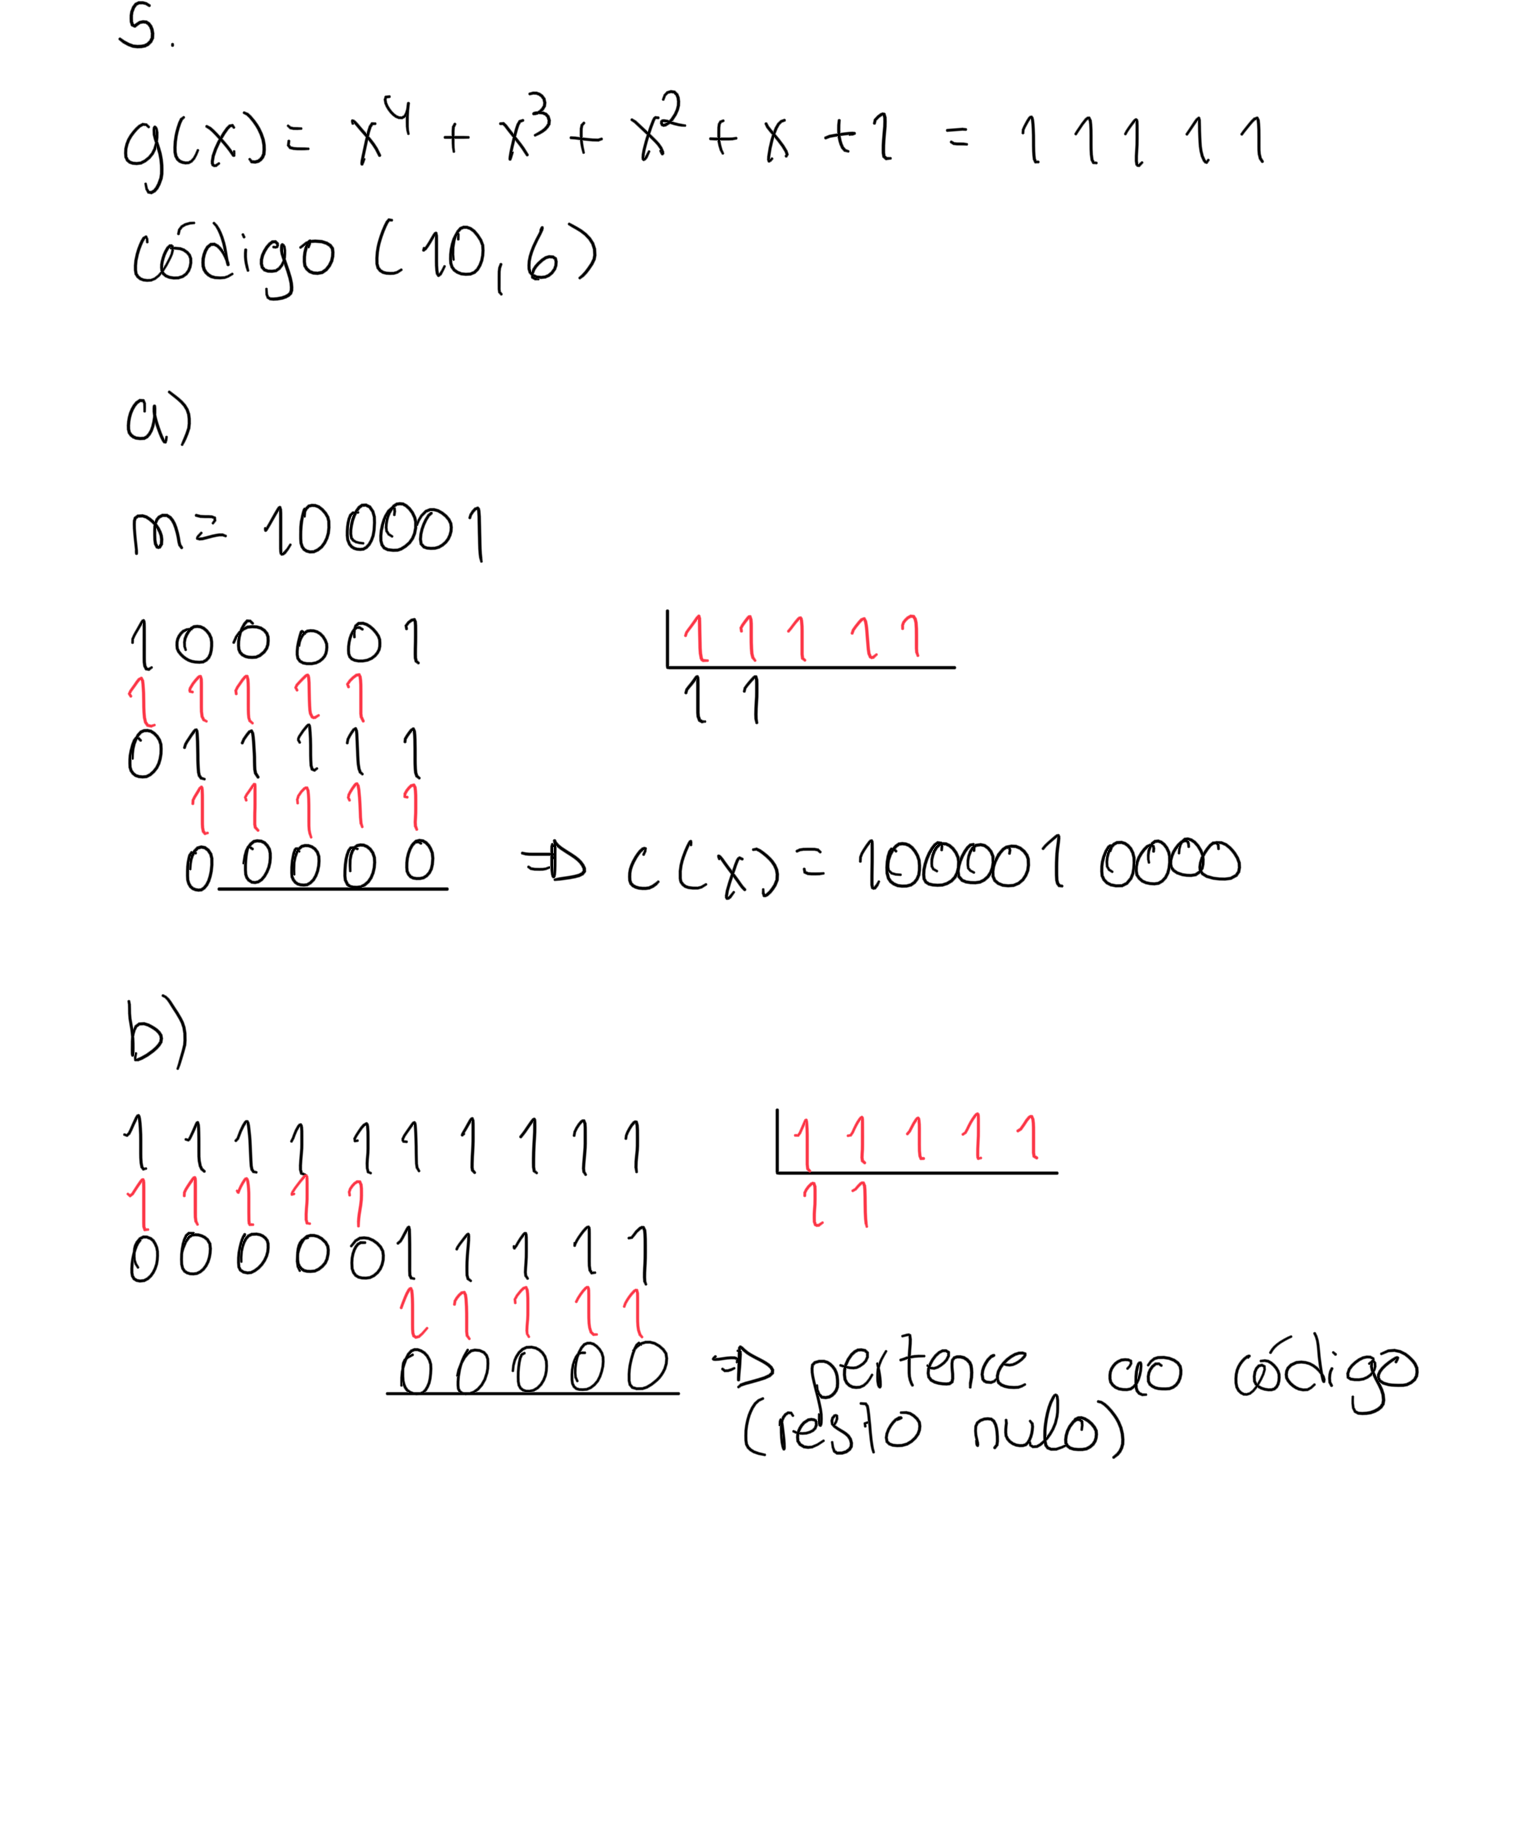 5.
g(x) = x⁴ + x³ + x² + x + 1 = 1 1 1 1 1
código (10,6)
a)
m = 100001
1 0 0 0 0 1 | 1 1 1 1 1
1 1 1 1 1 1 1
0 1 1 1 1 1
1 1 1 1 1
0 0 0 0 0 => c(x) = 100001 0000
b)
1 1 1 1 1 1 1 1 1 1 | 1 1 1 1 1
1 1 1 1 1 1 1
0 0 0 0 0 1 1 1 1 1
1 1 1 1 1
0 0 0 0 0 => pertence ao código
(resto nulo)